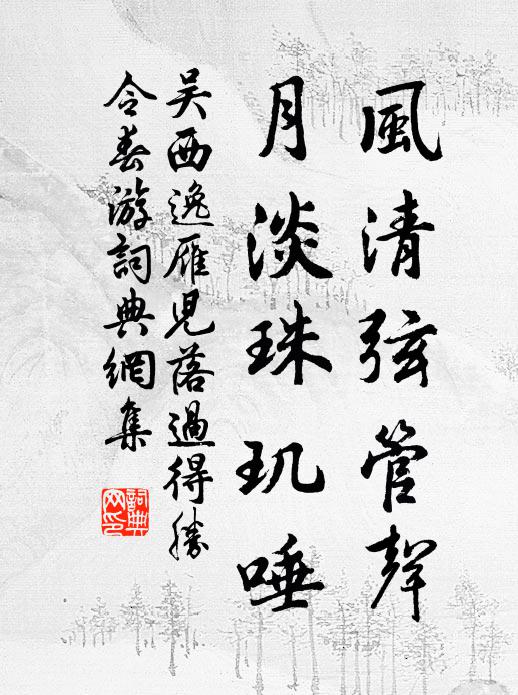 風清弦管聲
月淡珠玑唾
吴西逸雁兒落過得勝
令春游詞典網集
詞典网印